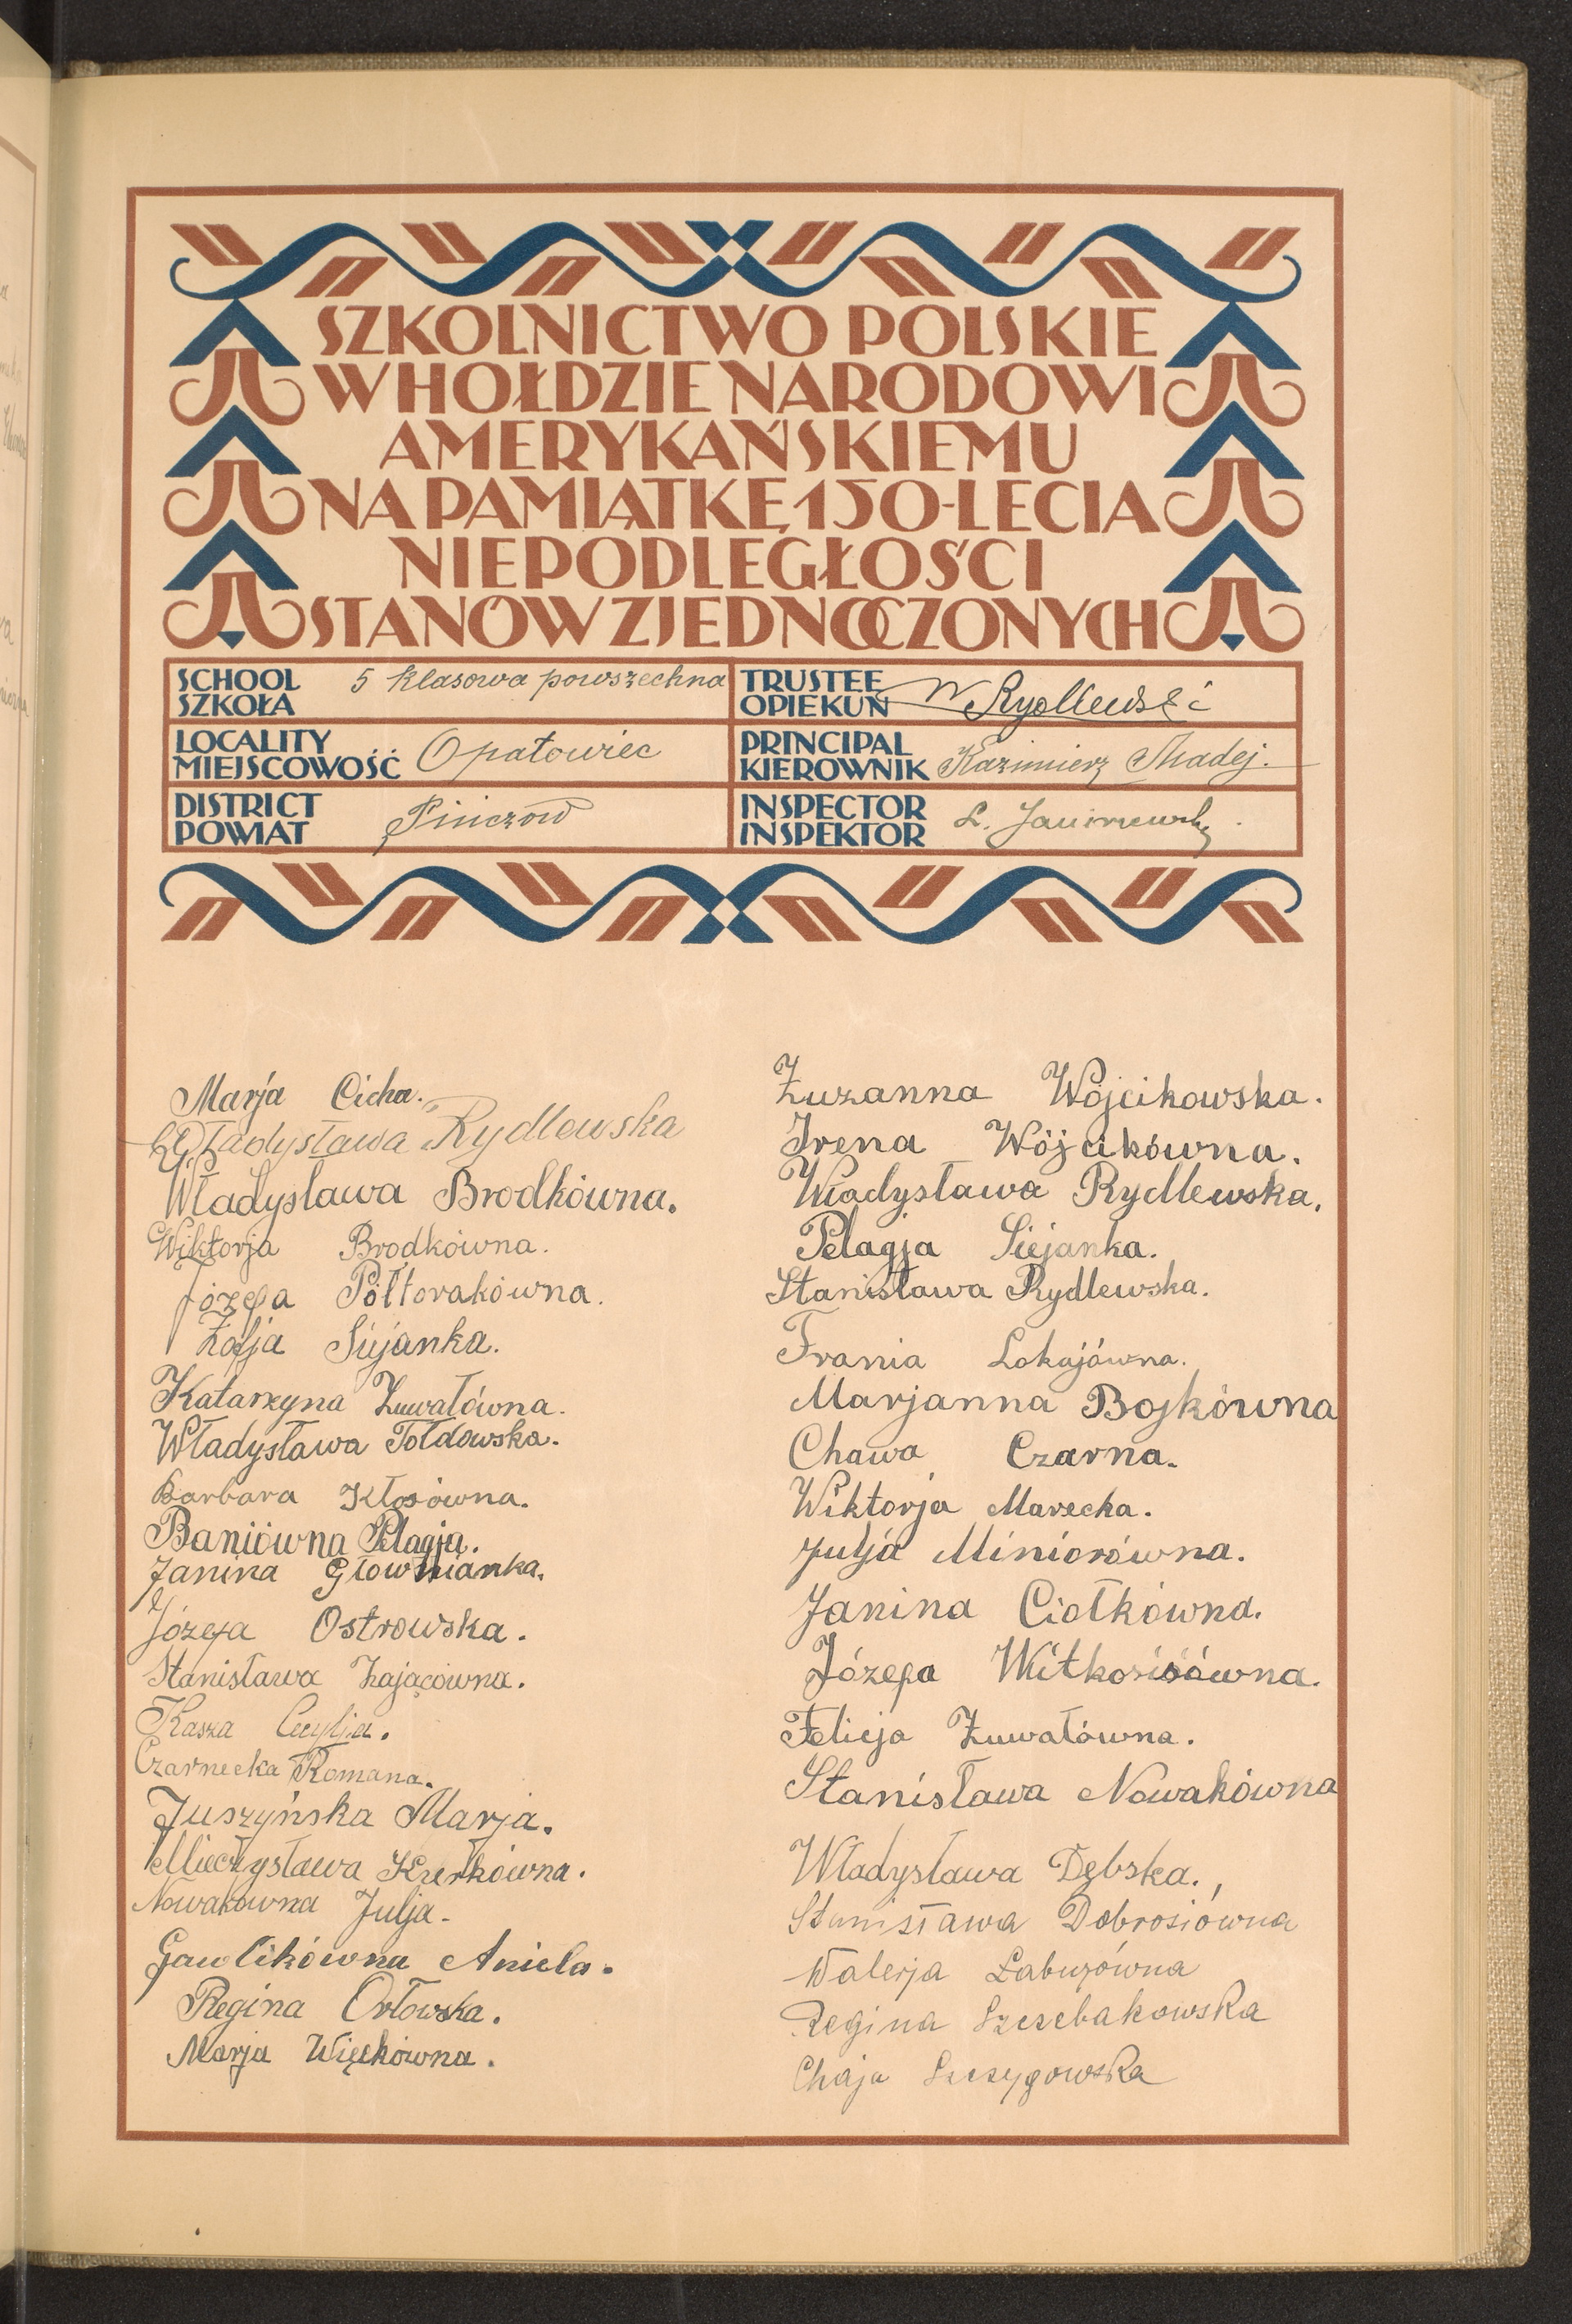 SZKOLNICTWO POLSKIE
W HOŁDZIE NARODOWI
AMERYKAŃSKIEMU
NA PAMIĄTKĘ 150-LECIA
NIEPODLEGŁOŚCI
STANÓW ZJEDNOCZONYCH
SCHOOL
SZKOŁA
5 klasowa powszechna
TRUSTEE
OPIEKUN
W Rydlewski
LOCALITY
MIEJSCOWOŚĆ
Opatowiec
PRINCIPAL
KIEROWNIK
Kazimierz Madej.
DISTRICT
POWIAT
Pinczów
INSPECTOR
INSPEKTOR
L.
Marja Cicha.
Władysława Rydlewska
Władysława Brodkówna.
Wiktorja Brodkówna.
Józefa Półtorakówna.
Zofja Siejanka.
Katarzyna Zuwałówna.
Władysława Fołdowska.
Barbara Kłosówna.
Baniówna Pelagja.
Janina Głownianka.
Józefa Ostrowska.
Stanisława Zającówna.
Kasza Cecylja.
Czarnecka Romana.
Juszyńska Marja.
Mieczysława Kurkówna.
Nowakówna Julja.
Gawlikówna Aniela.
Regina Orłowska.
Marja Więckówna.
Zuzanna Wójcikowska.
Irena Wójcikówna.
Władysława Rydlewska.
Pelagja Siejanka.
Stanisława Rydlewska.
Frania Lokajówna.
Marjanna Bojkówna
Chawa Czarna.
Wiktorja Marecka.
Julja Miniorówna.
Janina Ciołkówna.
Józefa Witkosiówna.
Felicja Zuwałówna.
Stanisława Nowakówna
Władysława Dębska.
Stanisława Dobrosiówna
Walerja Łabuzówna
Regina Szczebakowska
Chaja Szczygowska